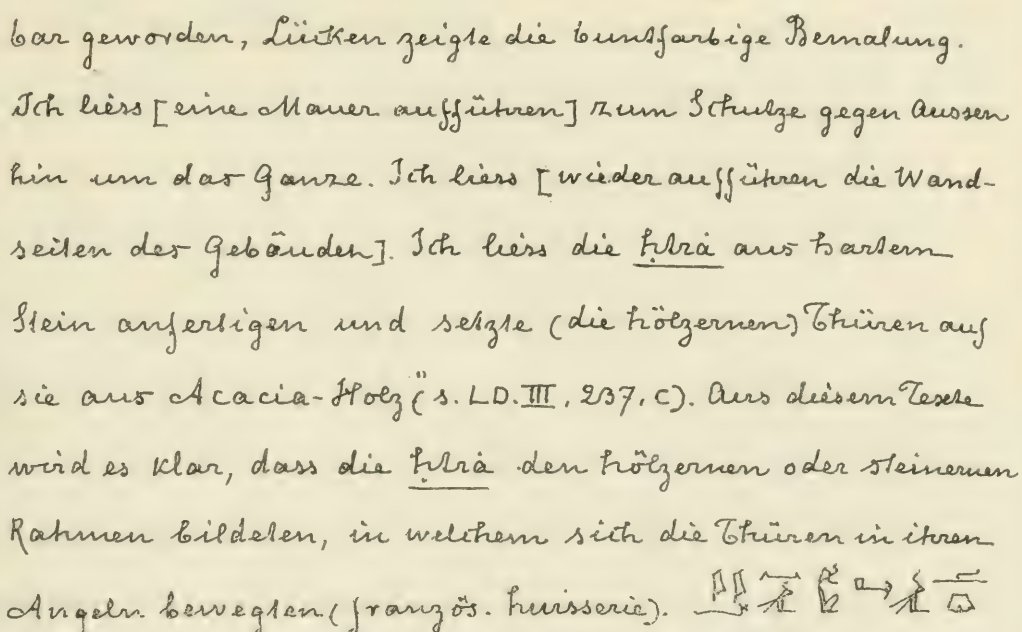 bar geworden, Lücken zeigte die buntfarbige Bemalung.
Ich liess [eine Mauer aufführen] zum Schutze gegen Aussen
hin um das Ganze. Ich liess [wieder aufführen die Wand-
seiten des Gebäudes]. Ich liess die ḥtrà aus hartem
Stein anfertigen und setzte (die hölzernen) Thüren auf
sie aus Acacia-Holz" (s. LD. III, 237, c). Aus diesem Texte
wird es klar, dass die ḥtrà den hölzernen oder steinernen
Rahmen bildeten, in welchem sich die Thüren in ihren
Angeln bewegten (französ. huisserie).